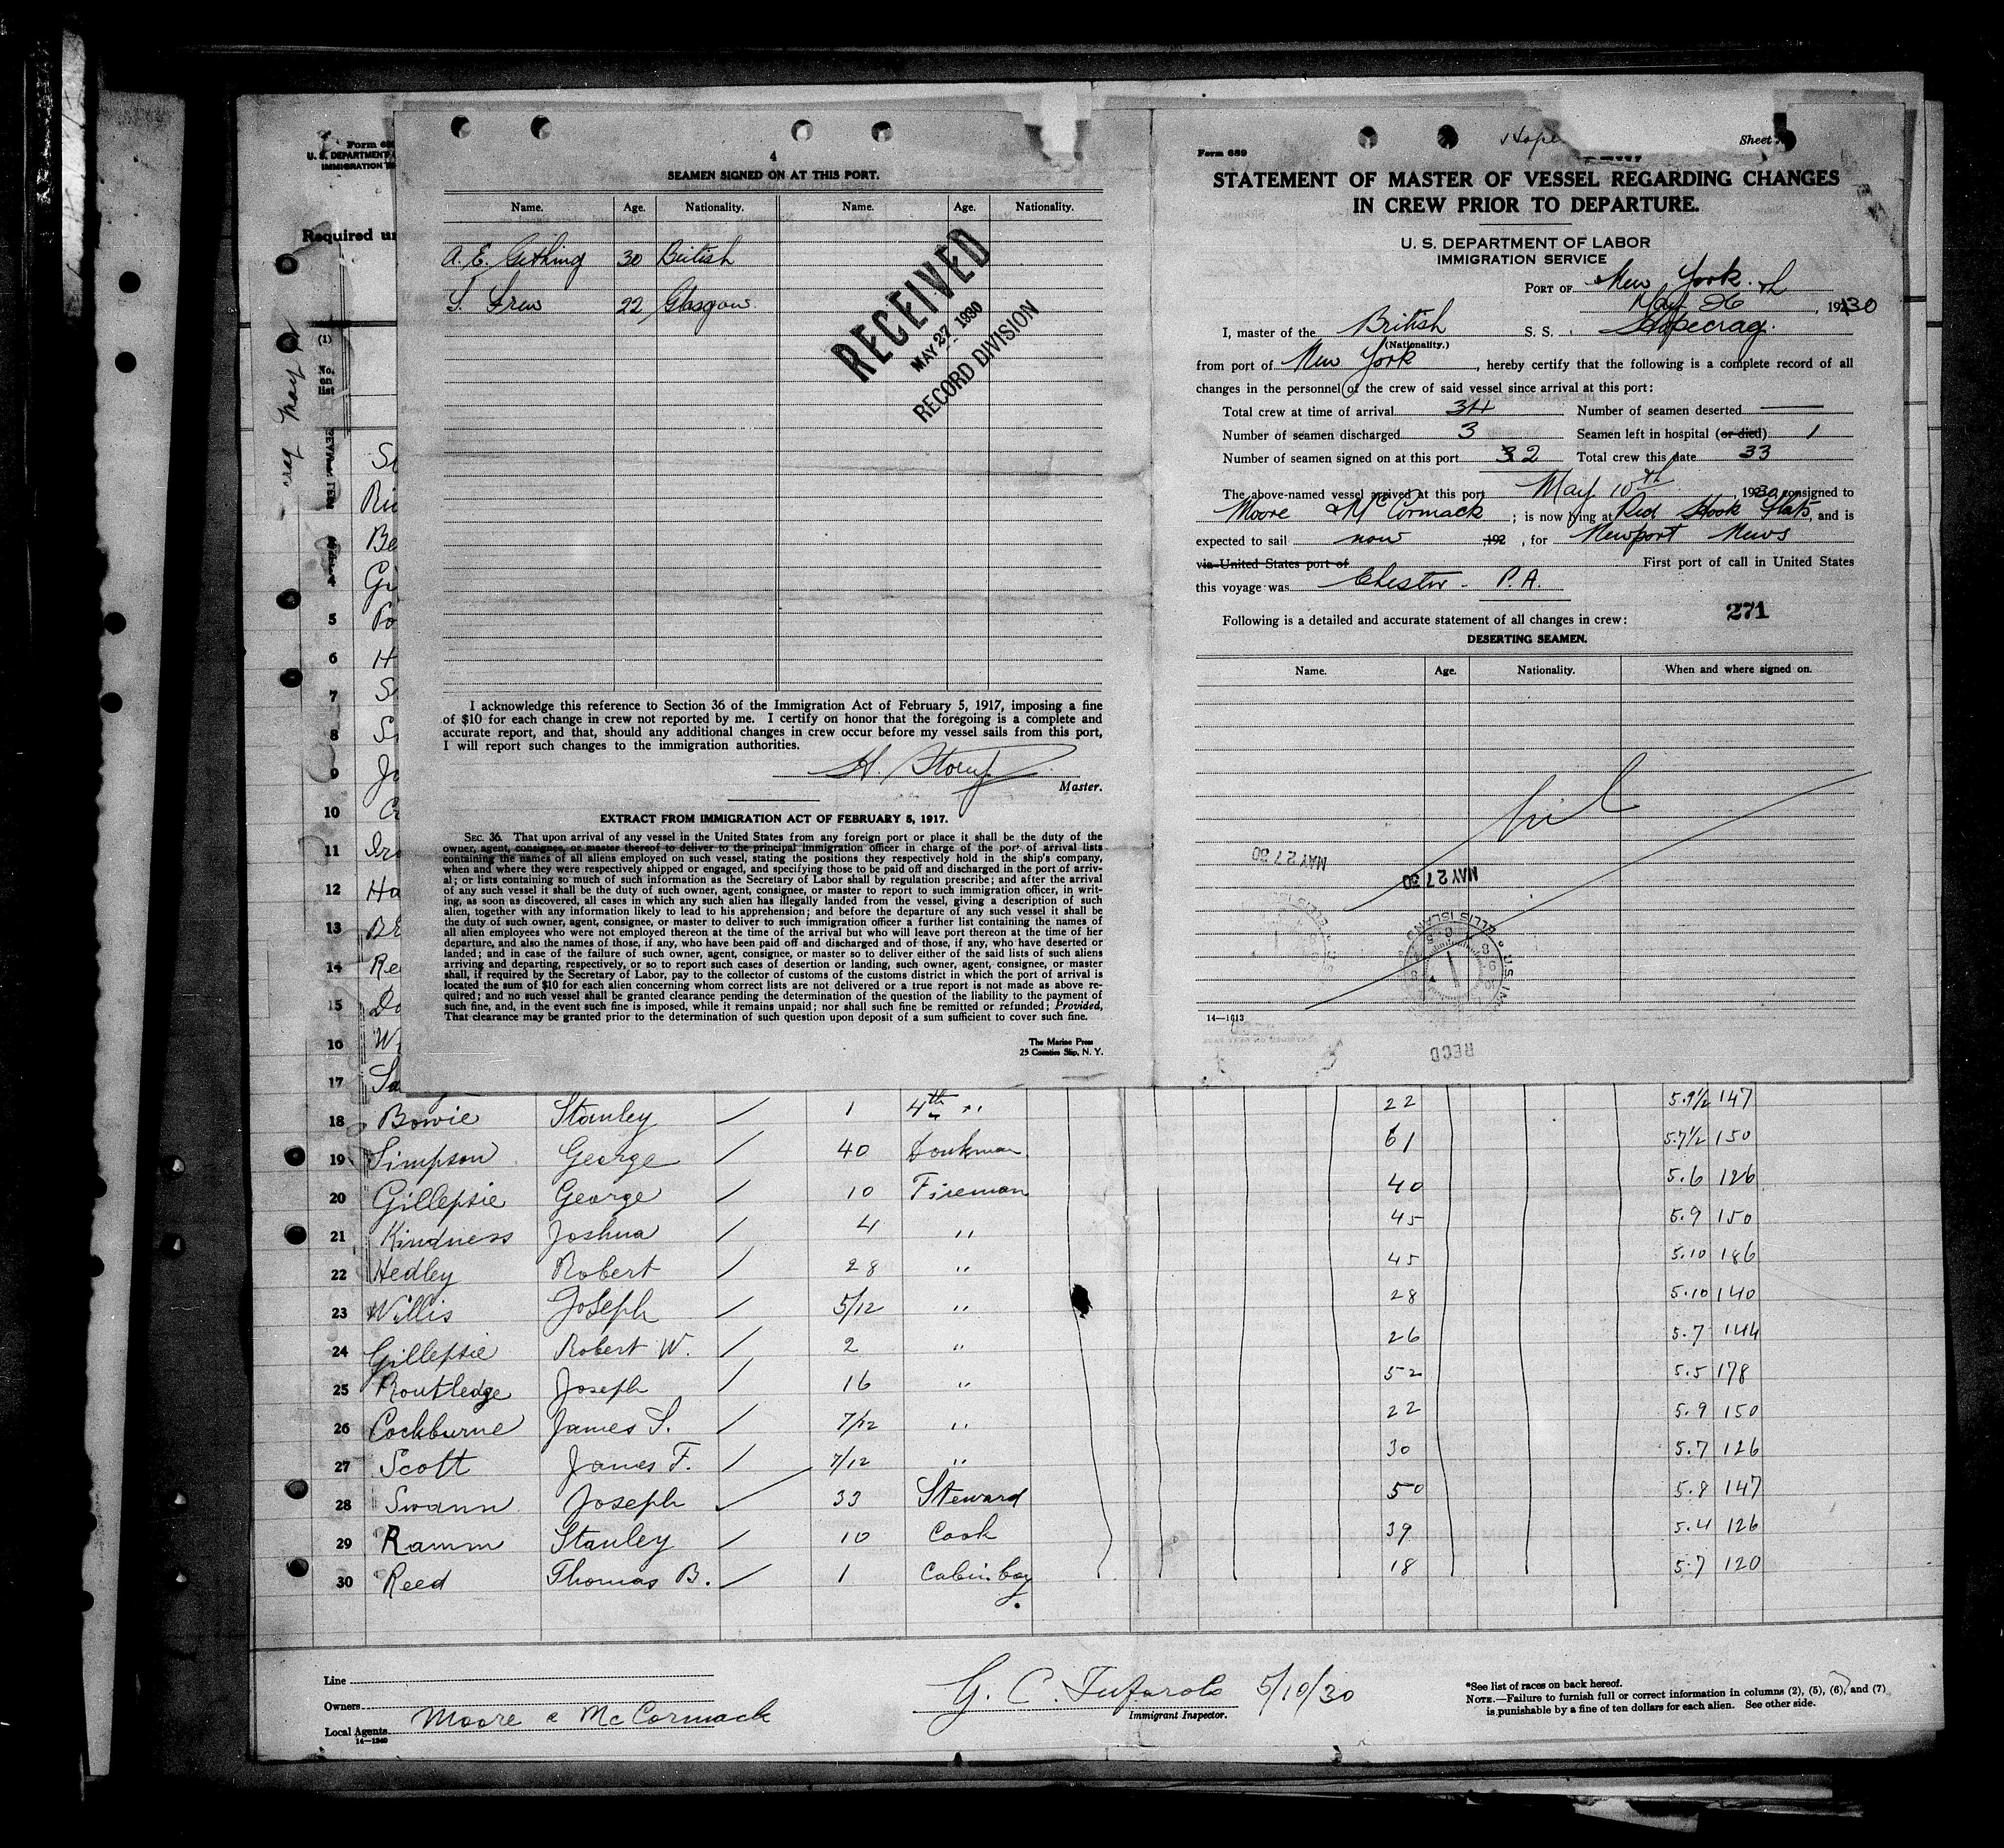 4
SEAMEN SIGNED ON AT THIS PORT.
Name. Age. Nationality. Name. Age. Nationality.
A. E. Gething 30 British
S. Frew 22 Glasgow
RECEIVED
MAY 27 1930
RECORD DIVISION
I acknowledge this reference to Section 36 of the Immigration Act of February 5, 1917, imposing a fine
of $10 for each change in crew not reported by me. I certify on honor that the foregoing is a complete and
accurate report, and that, should any additional changes in crew occur before my vessel sails from this port,
I will report such changes to the immigration authorities.
Master.
EXTRACT FROM IMMIGRATION ACT OF FEBRUARY 5, 1917.
SEC. 36. That upon arrival of any vessel in the United States from any foreign port or place it shall be the duty of the
owner, agent, consignee, or master thereof to deliver to the principal immigration officer in charge of the port of arrival lists
containing the names of all aliens employed on such vessel, stating the positions they respectively hold in the ship's company,
when and where they were respectively shipped or engaged, and specifying those to be paid off and discharged in the port of arriv-
al; or lists containing so much of such information as the Secretary of Labor shall by regulation prescribe; and after the arrival
of any such vessel it shall be the duty of such owner, agent, consignee, or master to report to such immigration officer, in writ-
ing, as soon as discovered, all cases in which any such alien has illegally landed from the vessel, giving a description of such
alien, together with any information likely to lead to his apprehension; and before the departure of any such vessel it shall be
the duty of such owner, agent, consignee, or master to deliver to such immigration officer a further list containing the names of
all alien employees who were not employed thereon at the time of the arrival but who will leave port thereon at the time of her
departure, and also the names of those, if any, who have been paid off and discharged and of those, if any, who have deserted or
landed; and in case of the failure of such owner, agent, consignee, or master so to deliver either of the said lists of such aliens
arriving and departing, respectively, or so to report such cases of desertion or landing, such owner, agent, consignee, or master
shall, if required by the Secretary of Labor, pay to the collector of customs of the customs district in which the port of arrival is
located the sum of $10 for each alien concerning whom correct lists are not delivered or a true report is not made as above re-
quired; and no such vessel shall be granted clearance pending the determination of the question of the liability to the payment of
such fine, and, in the event such fine is imposed, while it remains unpaid; nor shall such fine be remitted or refunded; Provided,
That clearance may be granted prior to the determination of such question upon deposit of a sum sufficient to cover such fine.
The Marine Press
25 Coenties Slip, N. Y.
Form 689 Sheet
STATEMENT OF MASTER OF VESSEL REGARDING CHANGES
IN CREW PRIOR TO DEPARTURE.
U. S. DEPARTMENT OF LABOR
IMMIGRATION SERVICE
PORT OF New York
May 26th, 1930
I, master of the British S. S. Hopecrag.
(Nationality.)
from port of New York, hereby certify that the following is a complete record of all
changes in the personnel of the crew of said vessel since arrival at this port:
Total crew at time of arrival 34 Number of seamen deserted —
Number of seamen discharged 3 Seamen left in hospital (or died) 1
Number of seamen signed on at this port 2 Total crew this date 33
The above-named vessel arrived at this port May 10th, 1930 consigned to
Moore & McCormack; is now lying at Red Hook Flats, and is
expected to sail now 192, for Newport News
via United States port of First port of call in United States
this voyage was Chester - P.A.
271
Following is a detailed and accurate statement of all changes in crew:
DESERTING SEAMEN.
Name. Age. Nationality. When and where signed on.
Nil
MAY 27 30
MAY 27 30
14—1613
RECD
Form
U. S. DEPARTMENT
IMMIGRATION
Required
No. on list
5
6
7
8
9
10
11
12
13
14
15
16
17
18 Bowie Stanley 1 4th " 22 5.9½ 147
19 Simpson George 40 Donkman 61 5.7½ 150
20 Gillepsie George 10 Fireman 40 5.6 126
21 Kindness Joshua 4 " 45 5.9 150
22 Hedley Robert 28 " 45 5.10 186
23 Willis Joseph 5/12 " 28 5.10 140
24 Gillepsie Robert W. 2 " 26 5.7 144
25 Routledge Joseph 16 " 52 5.5 178
26 Cockburne James S. 7/12 " 22 5.9 150
27 Scott James F. 7/12 " 30 5.7 126
28 Swann Joseph 33 Steward 50 5.8 147
29 Ramm Stanley 10 Cook 39 5.4 126
30 Reed Thomas B. 1 Cabin boy 18 5.7 120
Line
Owners
Local Agents Moore & McCormack
14—1240
G. C. Tufarolo 5/10/30
Immigrant Inspector.
*See list of races on back hereof.
NOTE.—Failure to furnish full or correct information in columns (2), (5), (6), and (7)
is punishable by a fine of ten dollars for each alien. See other side.